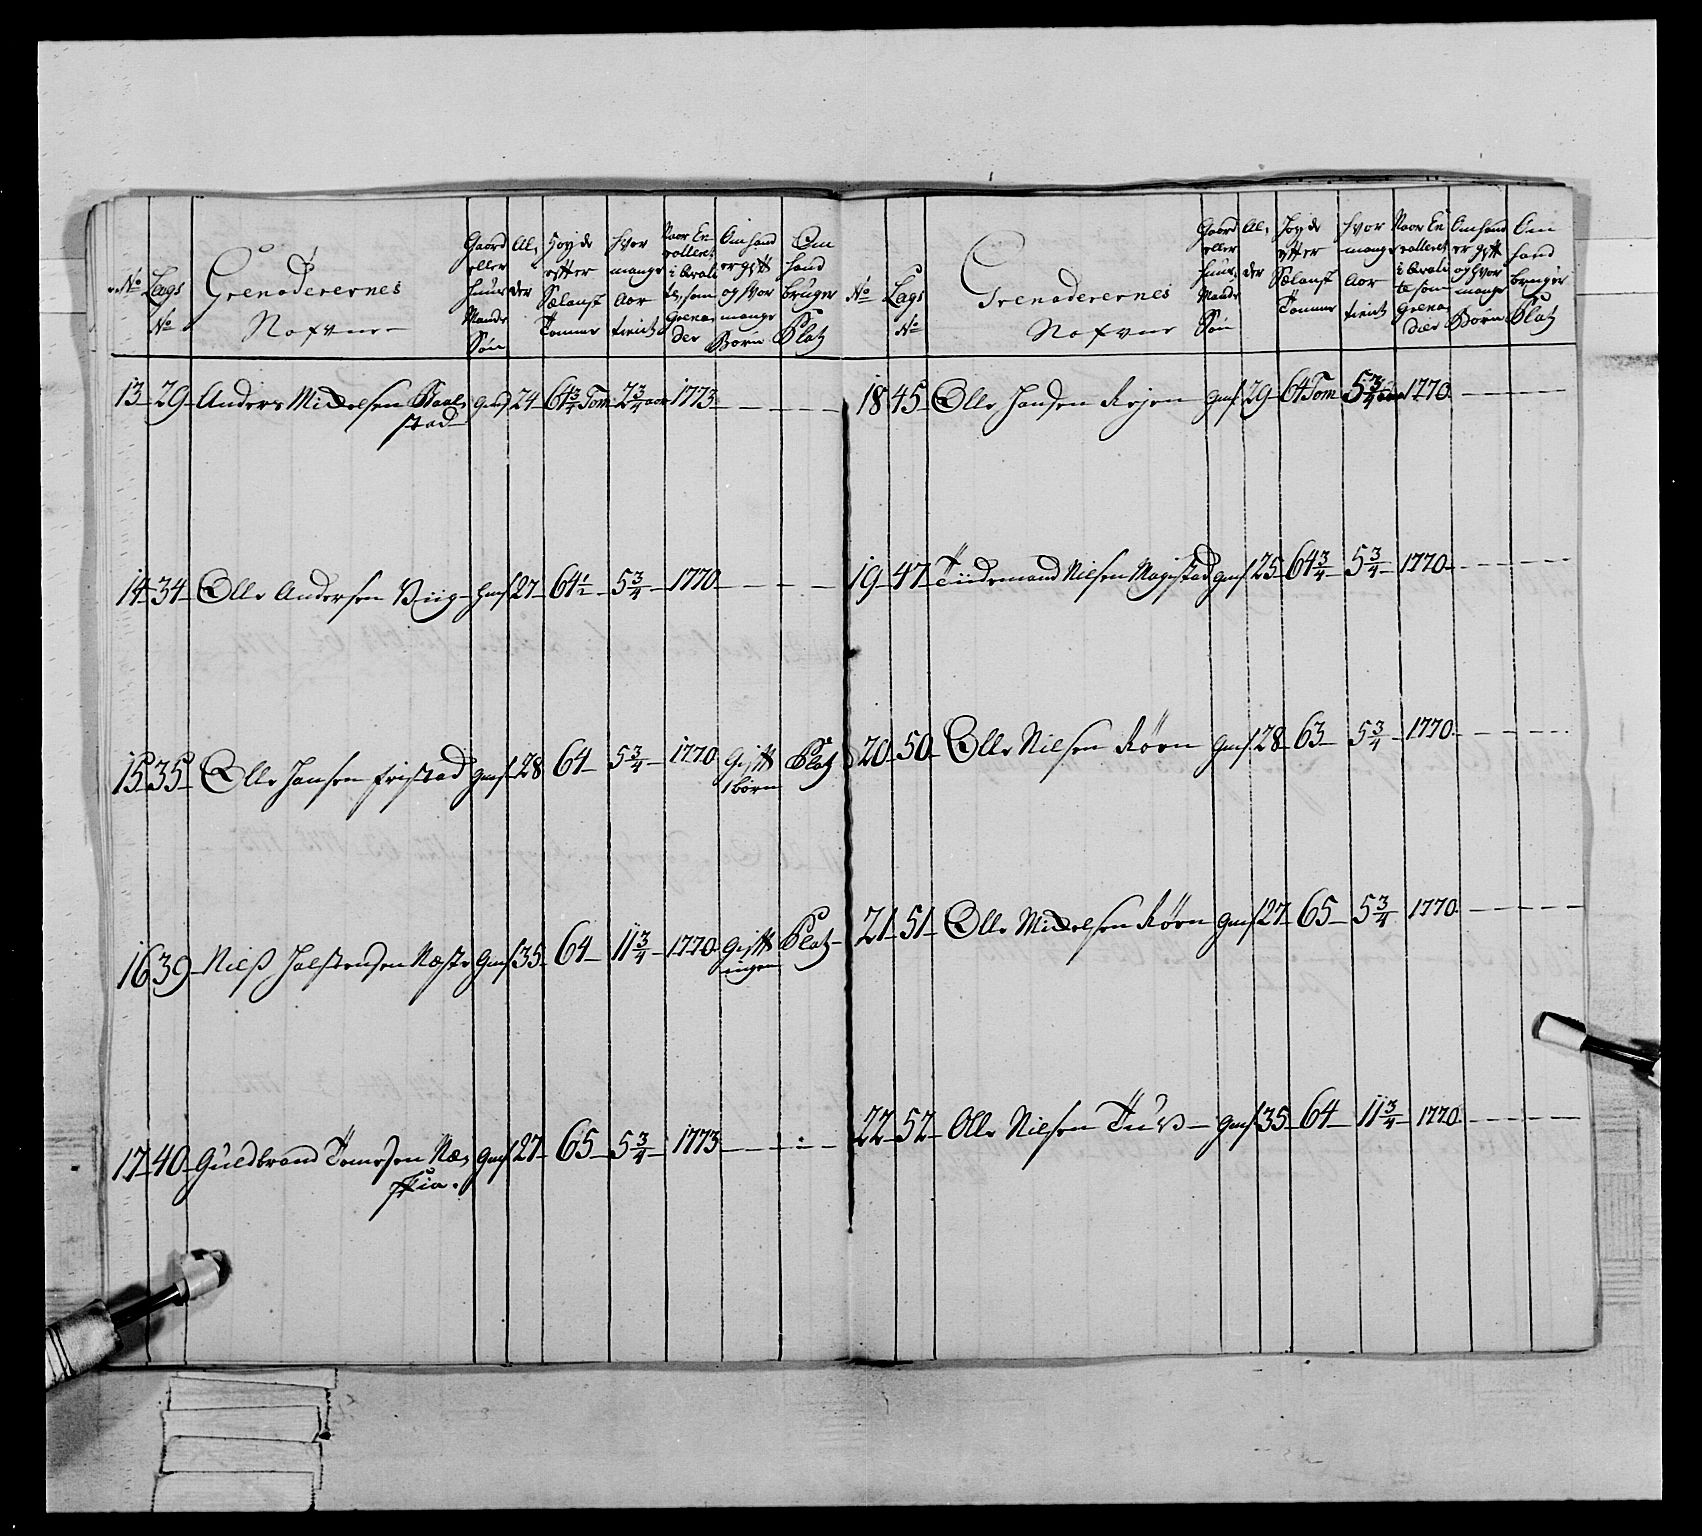 No Lags No Grenaderernes Nafvne Gaard eller Huus Mands Søn Al, der Høyde efter Sælansk Tommer Hvor mange Aar tient Naar En rolleret i Qvali te, som Grena der Om hand er gift og hvor mange Børn Om hand bruger Platz
13 29 Anders Mickelsen Baal, stad gms 24 64 3/4 Tom 2 3/4 aar 1773
14 34 Olle Andersen Viig hms 27 64 1/2 5 3/4 1770
15 35 Olle Hansen Fristad gms 28 64 5 3/4 1770 Gift 1 børn Platz
16 39 Nielß Halstensen Næste gms 35 64 11 3/4 1770 Gift ingen Platz
17 40 Guldbrand Tomesen Næ, gms 27 65 5 3/4 1773
No Lags No Grenaderernes Nafvne Gaard eller Huus Mands Søn Al, der Høyde efter Sælansk Tommer Hvor mange Aar tient Naar En rolleret i Qvali te som Grena der Om hand er gift og hvor mange Børn Om hand bruger Platz
18 45 Olle Hansen Rejen gms 29 64 Tom 5 3/4 aar 1770
19 47 Tiidemand Nilsen Magistad gms 25 64 3/4 5 3/4 1770
20 50 Olle Nilsen Røen gms 28 63 5 3/4 1770
21 51 Olle Mickelsen Røen gms 27 65 5 3/4 1770
22 52 Olle Nilsen gms 35 64 11 3/4 1770